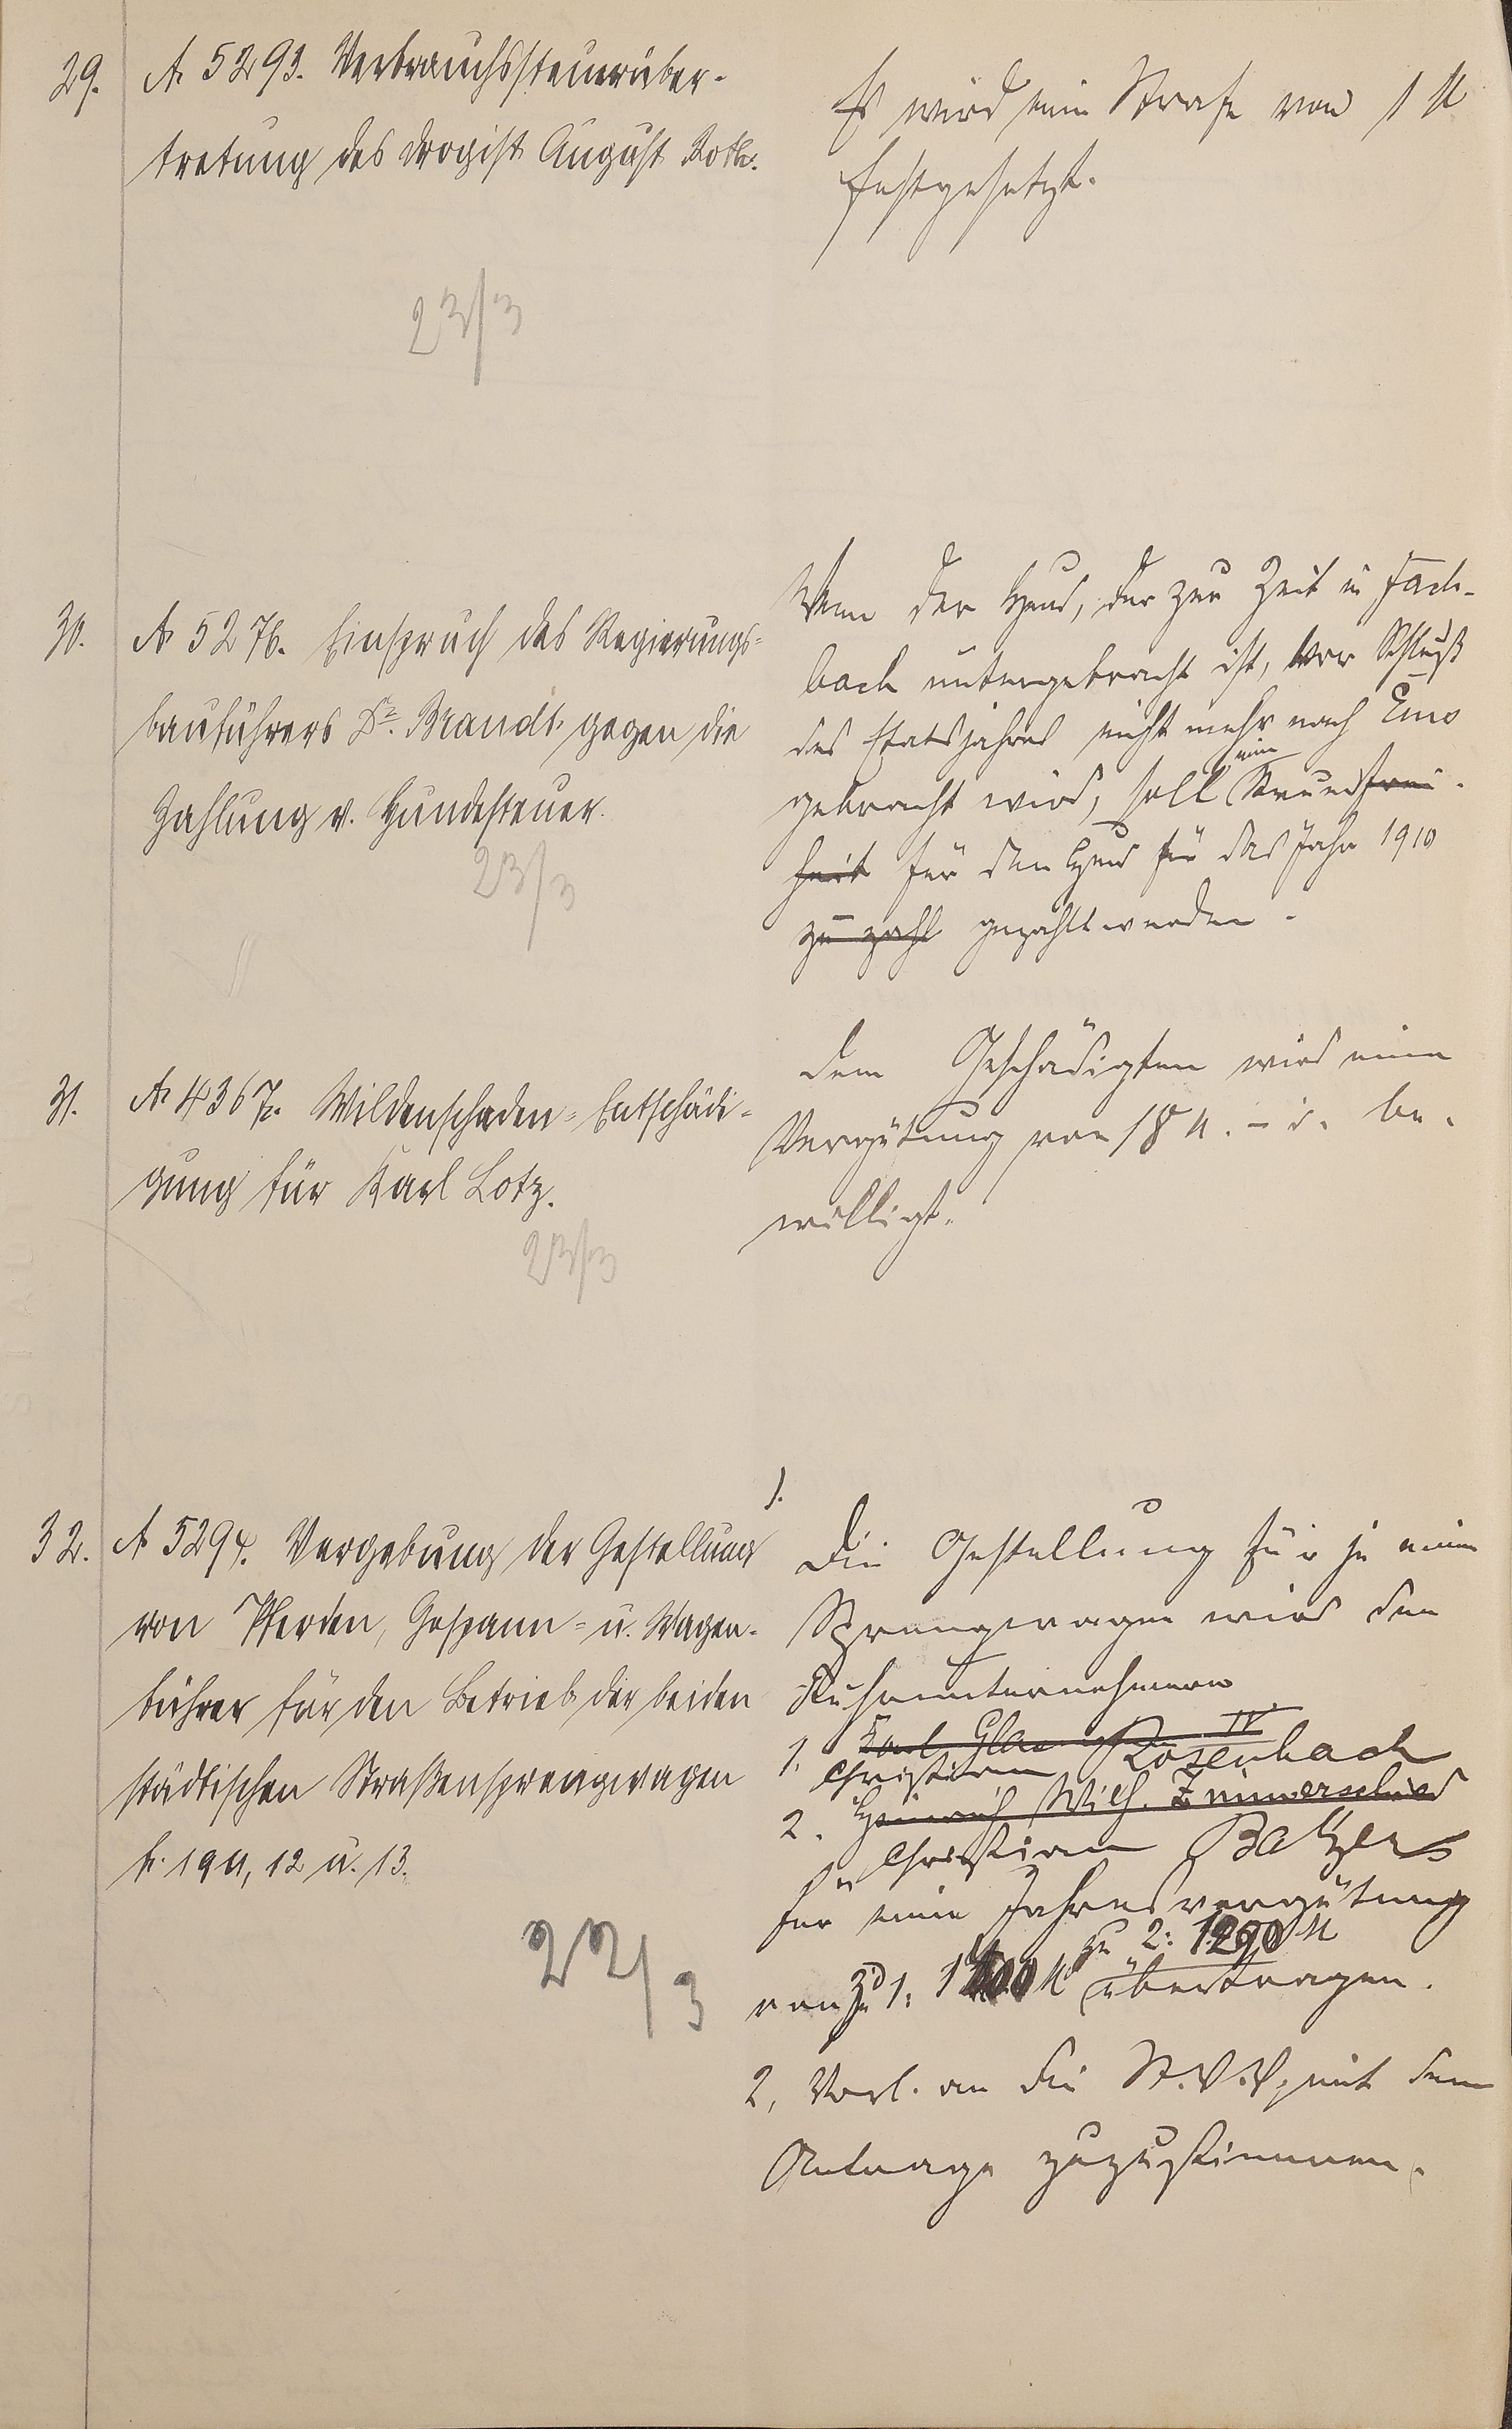 29. A. 5293. Verbrauchssteuerüber-
tretung des Drogist August Roth.
Es wird eine Strafe von 1 M
festgesetzt.
23/3
30. A. 5276. Einspruch des Regierungs-
bauführers Dr. Brandt gegen die
Zahlung v. Hundesteuer.
23/3
Wenn der Hund, der zur Zeit in Fach-
bach untergebracht ist, vor Schluß
des Etatsjahres nicht mehr nach Ems
gebracht wird, soll keine Steuerfrei-
heit für den Hund für das Jahr 1910
zu zahl gezahlt werden.
31. A. 4367. Wildenschaden-Entschädi-
gung für Karl Lotz.
23/3
Dem Geschädigten wird eine
Vergütung von 18 M. - d. be-
willigt.
32. A 5294. Vergebung der Gestellung
von Pferden, Gespann- u. Wagen-
führer für den Betrieb der beiden
städtischen Straßensprengwagen
f. 1911, 12 u. 13.
22/3
1.
Die Gestellung für je einen
Sprengwagen wird den
Fuhrunternehmern
1. Karl IV
Christian Rosenbach
2. Heinrich Wilh. Zimmerschied
Christian Balzer
für eine Jahresvergütung
zu 2: 1290 M
von zu 1: M übertragen.
2, Vorl. an die St.V.V. mit dem
Antrage zuzustimmen.